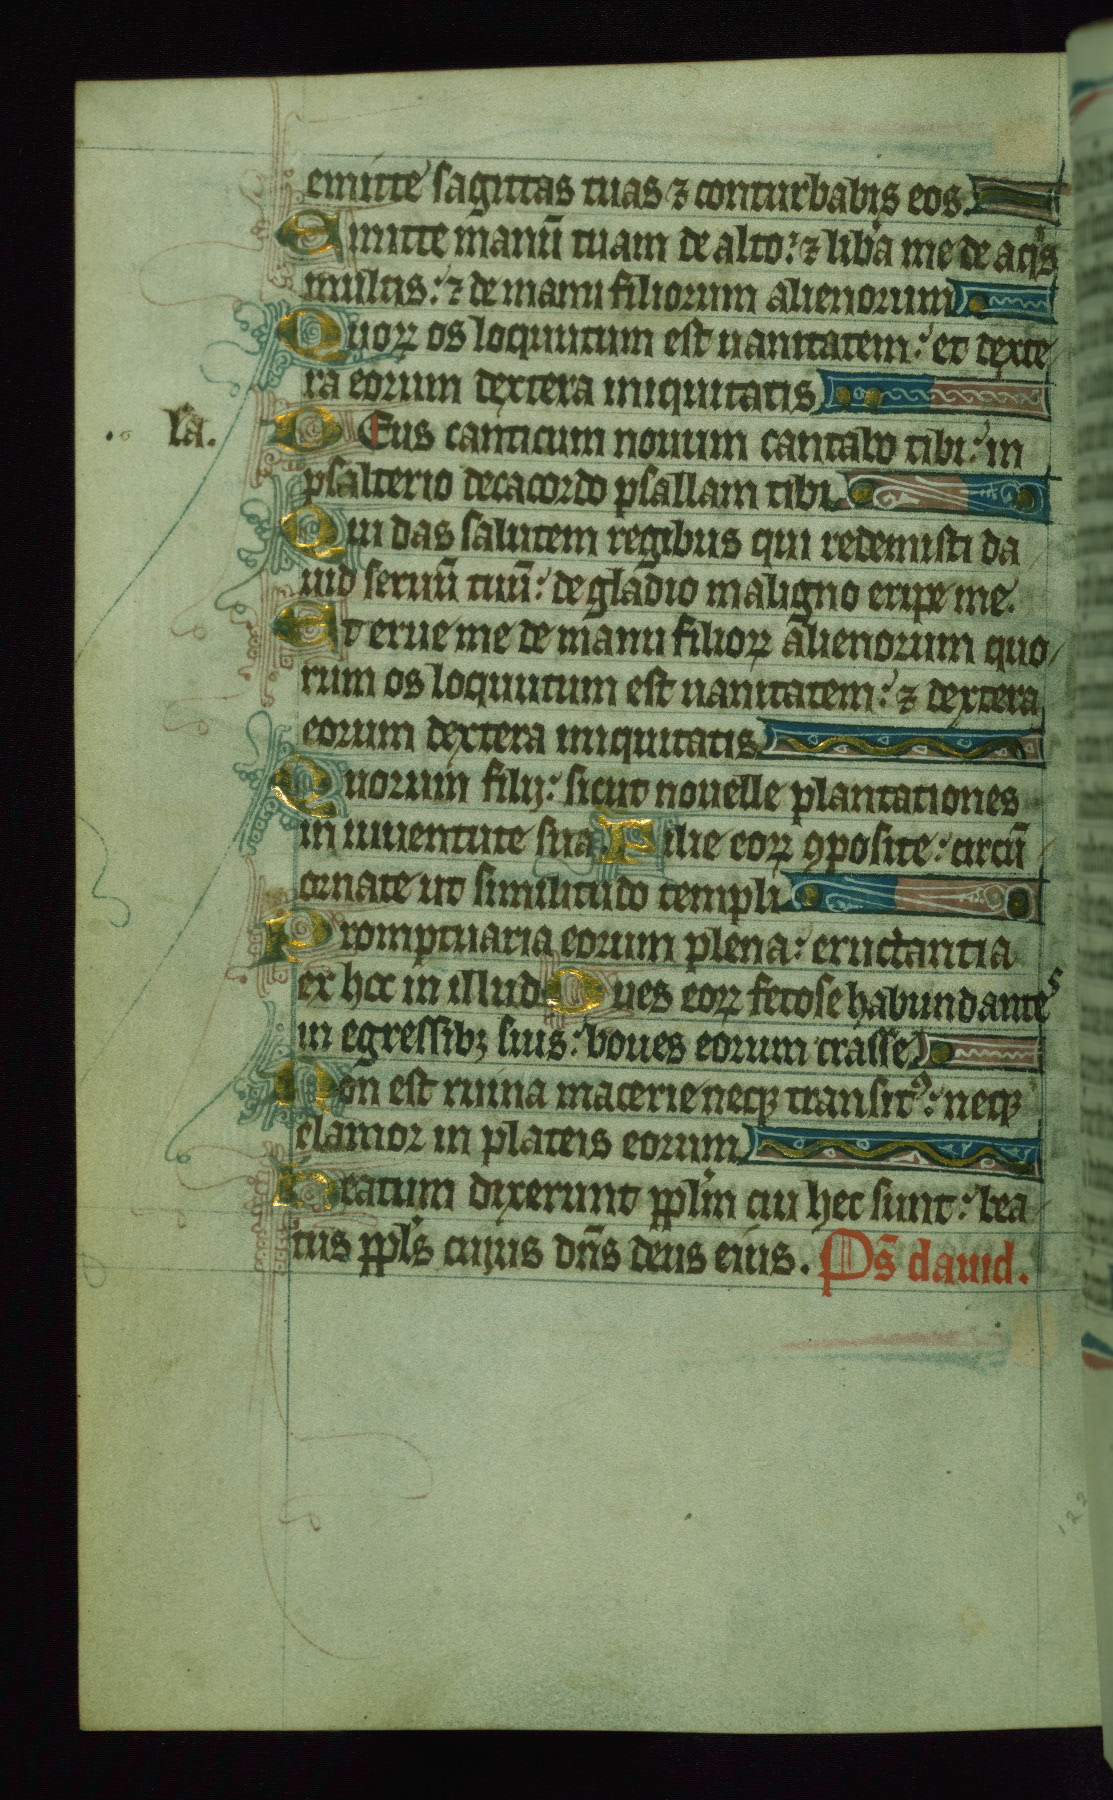 emitte sagittas tuas ⁊ conturbabis eos.
Emitte manū tuam de alto: ⁊ liba me de aq̄s
multis: ⁊ de manu filiorum alienorum
Quoꝝ os loquutum est uanitatem: et dexte
ra eorum dextera iniquitatis
la.
DEus canticum nouum cantabo tibi: in
psalterio decacordo psallam tibi.
Qui das salutem regibus qui redemisti da
uid seruū tuū: de gladio maligno eripe me.
Et erue me de manu filioꝝ alienorum quo
rum os loquutum est uanitatem: ⁊ dextera
eorum dextera iniquitatis
Quorum filij: sicut nouelle plantationes
in iuuentute sua. Filie eoꝝ ꝯposite: circū
ornate ut similitudo templi
Promptuaria eorum plena: eructantia
ex hoc in illud Oues eoꝝ fetose habundantes
in egressibꝫ suis: boues eorum crasse
Non est ruina macerie neqꝫ transitꝰ: neqꝫ
clamor in plateis eorum
Beatum dixerunt pplm cui hec sunt: bea
tus ppls cuius dn̄s deus eius. Ps̄ dauid.
122